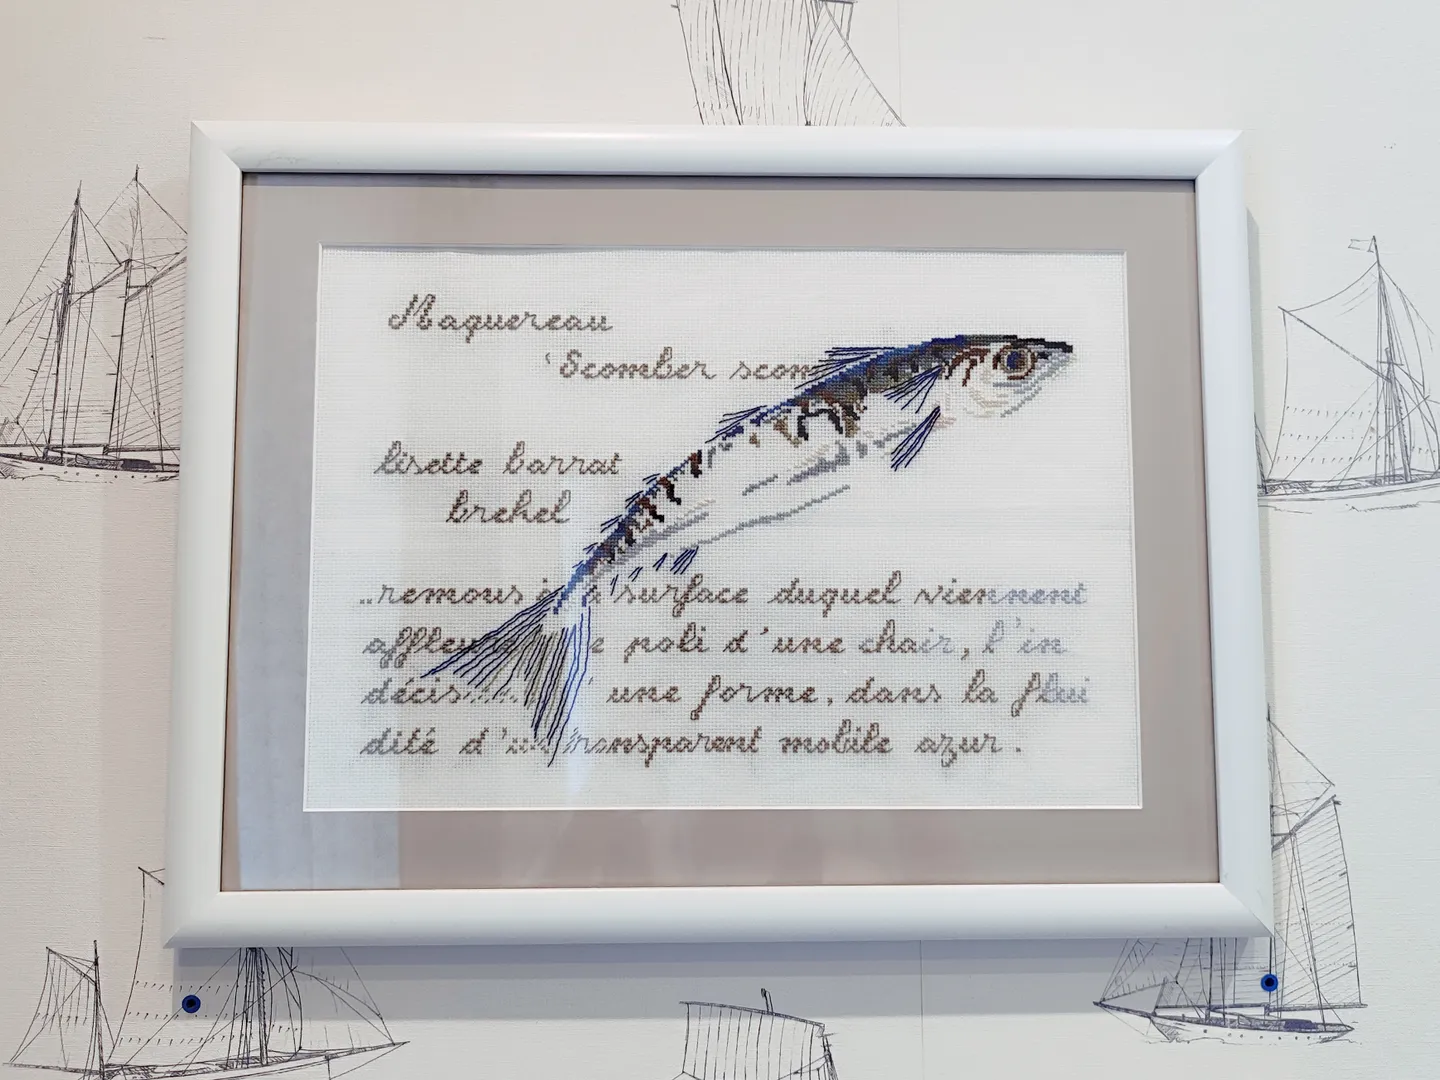 Maquereau
'Scomber scom
lisette barrat
brehel
..remous à surface duquel viennent
affleu e poli d'une chair, l'in
décis ' une forme, dans la flui
dité d'un transparent mobile azur.